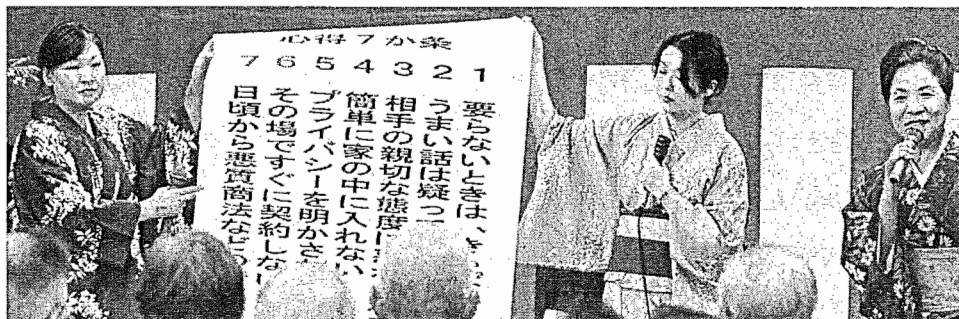 心得7か条
1 要らないときは、
2 うまい話は疑って
3 相手の親切な態度に
4 簡単に家の中に入れない
5 プライバシーを明かさ
6 その場ですぐに契約しな
7 日頃から悪質商法など